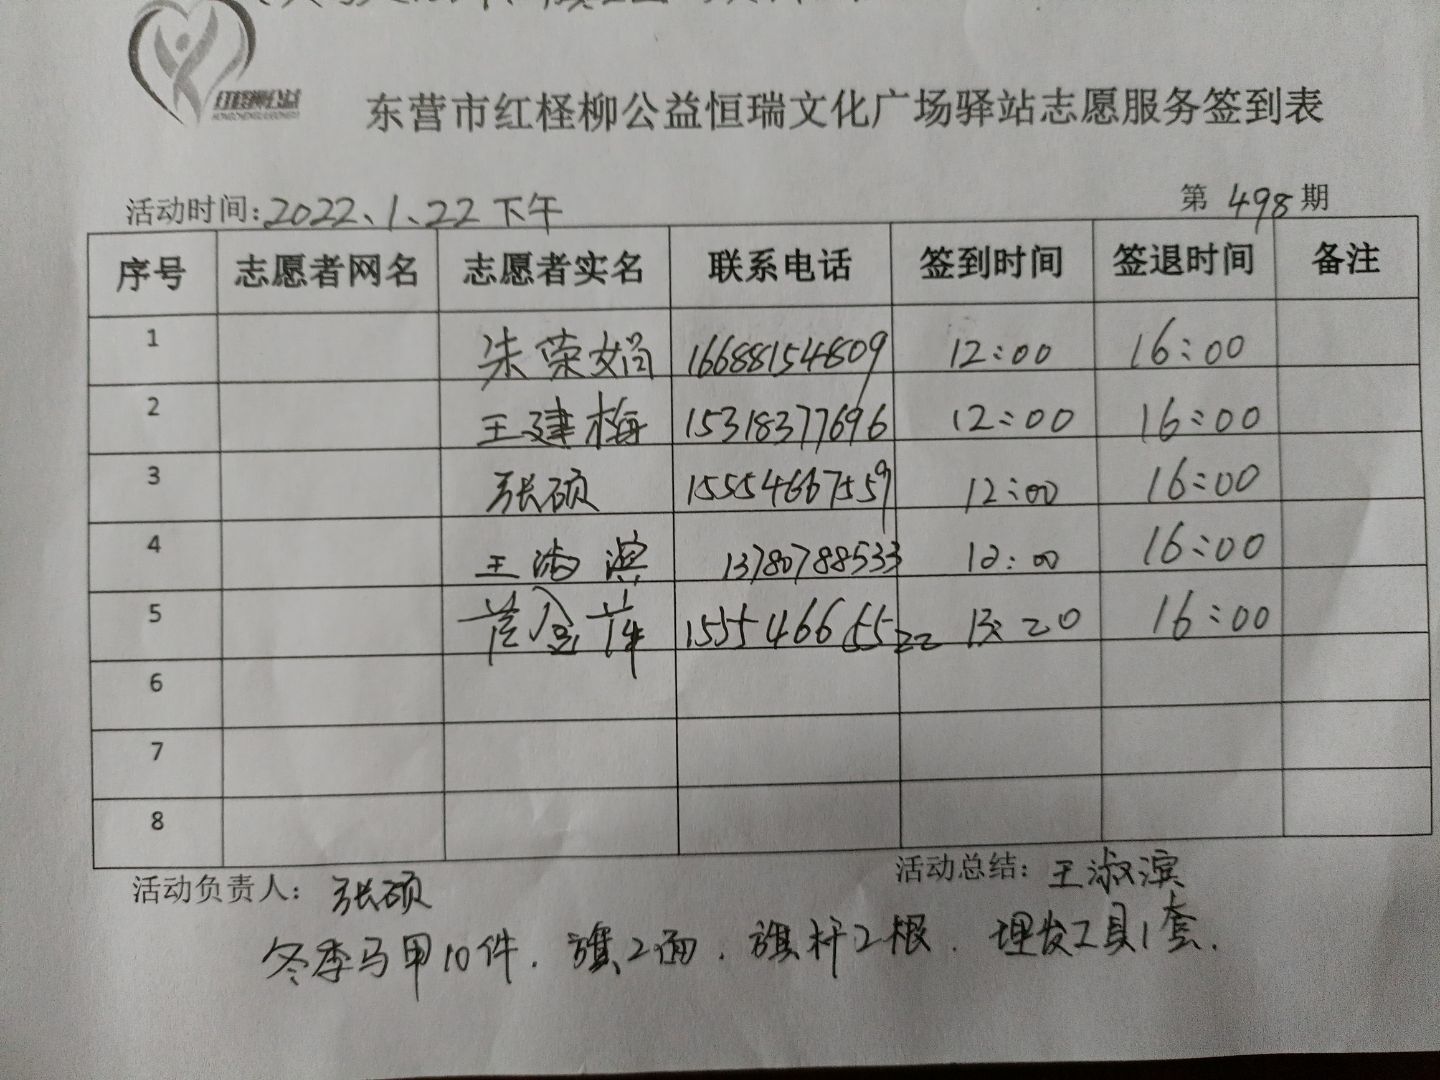 红柽柳公益
东营市红柽柳公益恒瑞文化广场驿站志愿服务签到表
活动时间:2022、1、22下午 第 498 期
序号 志愿者网名 志愿者实名 联系电话 签到时间 签退时间 备注
1 朱荣娟 16688154809 12:00 16:00
2 王建梅 15318377696 12:00 16:00
3 张硕 15554667559 12:00 16:00
4 王淑滨 13780788533 12:00 16:00
5 15554665522 13:20 16:00
6
7
8
活动负责人: 张硕 活动总结: 王淑滨
冬季马甲10件. 旗2面. 旗杆2根. 理发工具1套.